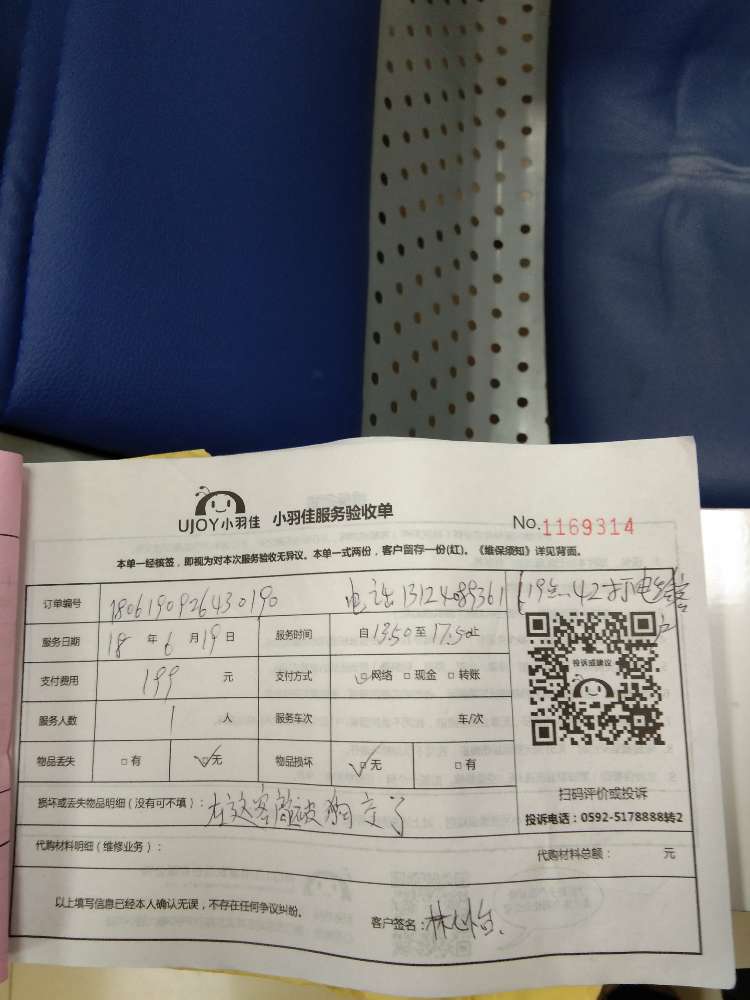 UJOY小羽佳 小羽佳服务验收单 No.1169314
本单一经核签，即视为对本次服务验收无异议。本单一式两份，客户留存一份(红)。《维保须知》详见背面。
订单编号 1806190926430190 电话 13124089361
服务日期 18 年 6 月 19 日 服务时间 自 13:50 至 17:50止
支付费用 199 元 支付方式 ☑网络 □现金 □转账
投诉或建议
服务人数 1 人 服务车次 车/次
物品丢失 □有 ☑无 物品损坏 ☑无 □有
扫码评价或投诉
损坏或丢失物品明细（没有可不填）：
投诉电话：0592-5178888转2
代购材料明细（维修业务）： 代购材料总额： 元
以上填写信息已经本人确认无误，不存在任何争议纠纷。 客户签名：